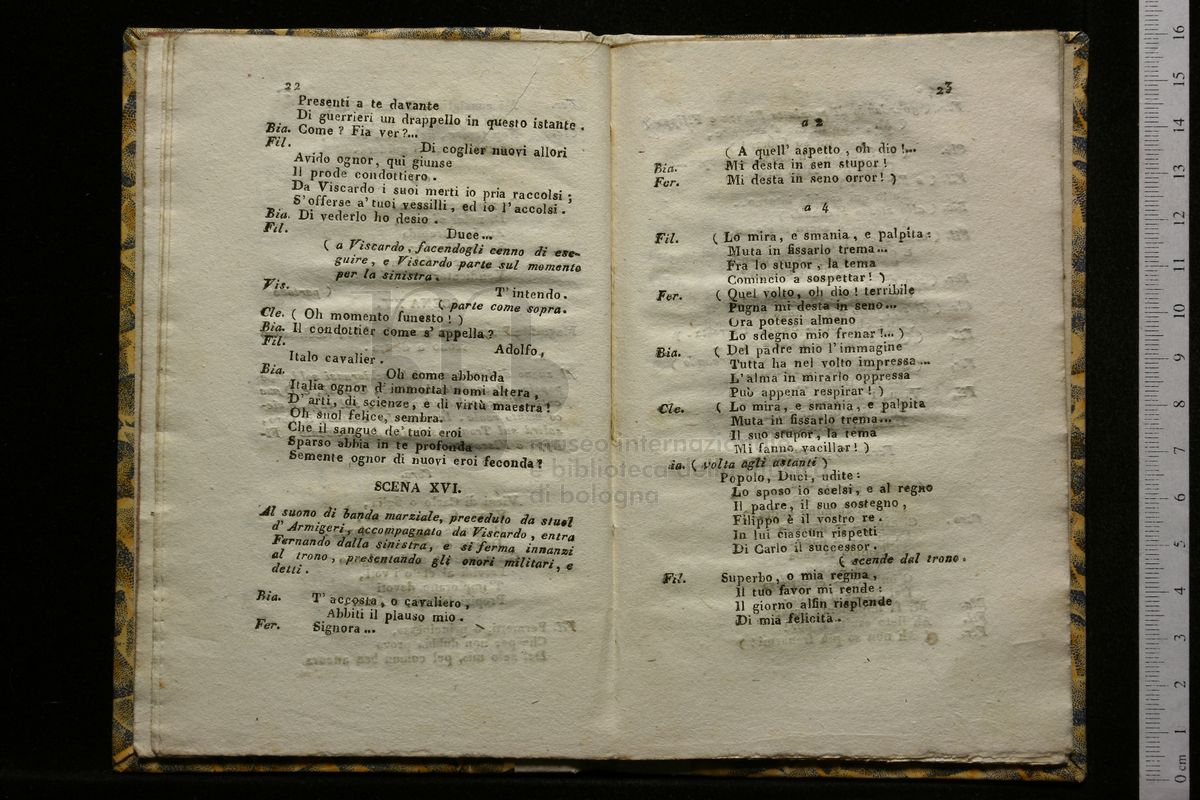 22
Presenti a te davante
Di guerrieri un drappello in questo istante .
Bia. Come ? Fia ver ?...
Fil. Di coglier nuovi allori
Avido ognor, qui giunse
Il prode condottiero .
Da Viscardo i suoi merti io pria raccolsi ;
S' offerse a' tuoi vessilli , ed io l' accolsi .
Bia. Di vederlo ho desio .
Fil. Duce...
( a Viscardo , facendogli cenno di ese-
guire , e Viscardo parte sul momento
per la sinistra .
Vis. T' intendo .
( parte come sopra .
Cle. ( Oh momento funesto ! )
Bia. Il condottier come s' appella ?
Fil. Adolfo ,
Italo cavalier .
Bia. Oh come abbonda
Italia ognor d' immortal nomi altera ,
D' arti, di scienze, e di virtù maestra !
Oh suol felice, sembra.
Che il sangue de' tuoi eroi
Sparso abbia in te profonda
Semente ognor di nuovi eroi feconda !
SCENA XVI.
Al suono di banda marziale, preceduto da stuol
d' Armigeri, accompagnato da Viscardo , entra
Fernando dalla sinistra, e si ferma innanzi
al trono , presentando gli onori militari, e
detti .
Bia. T' accosta , o cavaliero ,
Abbiti il plauso mio .
Fer. Signora ...
23
a 2
( A quell' aspetto , oh dio !...
Bia. Mi desta in sen stupor !
Fer. Mi desta in seno orror ! )
a 4
Fil. ( Lo mira, e smania, e palpita :
Muta in fissarlo trema...
Fra lo stupor , la tema
Comincio a sospettar ! )
Fer. ( Quel volto, oh dio ! terribile
Pugna mi desta in seno...
Ora potessi almeno
Lo sdegno mio frenar !... )
Bia. ( Del padre mio l' immagine
Tutta ha nel volto impressa ...
L' alma in mirarlo oppressa
Può appena respirar ! )
Cle. ( Lo mira, e smania, e palpita
Muta in fissarlo trema...
Il suo stupor, la tema
Mi fanno vacillar ! )
ia. ( volta agli astanti )
Popolo, Duci, udite :
Lo sposo io scelsi, e al regno
Il padre, il suo sostegno ,
Filippo è il vostro re .
In lui ciascun rispetti
Di Carlo il successor .
( scende dal trono .
Fil. Superbo, o mia regina ,
Il tuo favor mi rende :
Il giorno alfin risplende
Di mia felicità .
museo internazi
biblioteca del
di bologna
0 cm 1 2 3 4 5 6 7 8 9 10 11 12 13 14 15 16